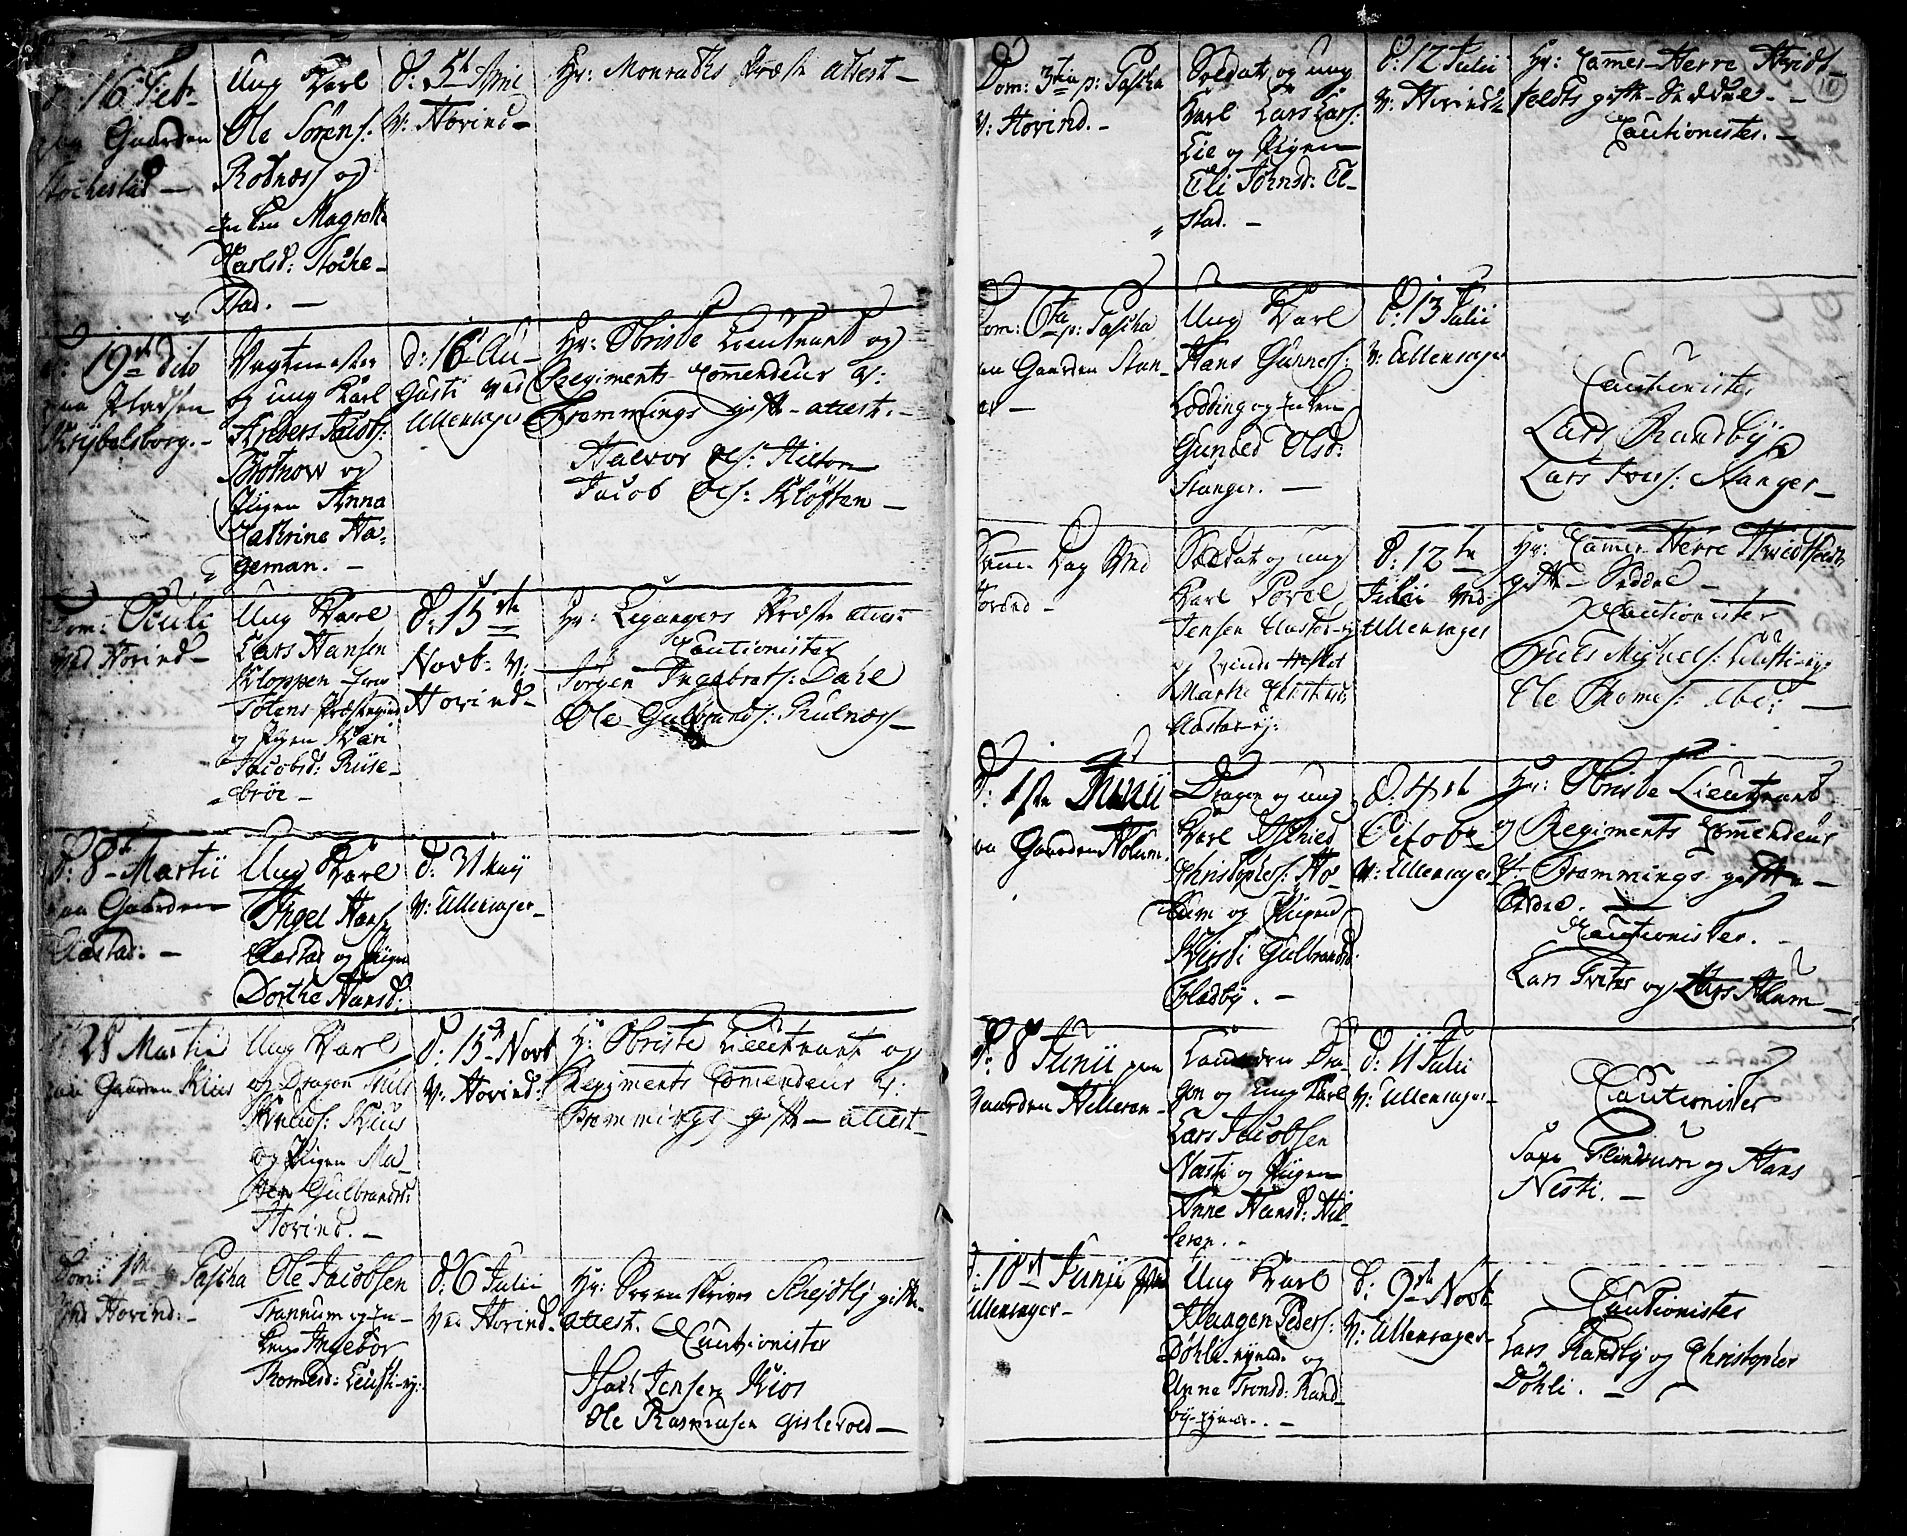 d: 16 Feb:
paa Gaarden
Stochestad —
Ung Karl
Ole Sørens:
Rotnæss og
Enken Magrethe
Carlsd: Stoche-
stad. —
d: 5th Junii
V: Hovind —
Hr: Monradts Præste attest —
d: 19de dito
paa Pladsen
Krybelsborg. —
Vagtmester
og ung Karl
Anders Jacobs:
Brotnow og
Pigen Anna
Cathrine Ha-
geman. —
d: 16 Au-
gusti ved
Ullensager
Hr: Obriste Lieutnant og
Regiments Commendeur V:
Frommings gifte-attest. —
Halvor Ols: Hilton
Jacob Ols: Kløften —
Dom: Oculi
ved Hovind —
Ung Karl
Lars Hansen
Kloppen fra
Totens Præstegield
og Pigen Kari
Jacobsd: Ruse-
brøe —
d: 15de
Novb: V:
Hovind —
Hr: Legangers Præste attest
Cautionister
Jørgen Ingebrets: Dahl
Ole Gulbrands: Rulnæss —
d: 8de Martii
paa Gaarden
Aastad: —
Ung Karl
Engel Hans:
Aastad og Pigen
Dorthe Hansd:
d: 31 May
V: Ullensager —
d: 28 Martii
paa Gaarden Kius
Ung Karl
og Dragon Nils
Knuds: Kius
og Pigen Ma-
ren Gulbrandsd:
Hovind. —
d: 15de Novb
V: Hovind:
Hr: Obriste Lieutnant og
Regiments Commendeur V:
Frommings gifte-attest —
Dom: 1ma p: Pascha
ved Hovind: —
Ole Jacobsen
Trannum og En-
ken Ingebor
Thomesd: Leusti-ey:
d: 6 Julii
ved Hovind.
Hr: Sorenskriver Schejdtz gifte-
attest.
Cautionister
Isach Jensen Kios
Ole Rasmusen Gislevold —
10
Dom: 3tia p: Pascha
V: Hovind. —
Soldat og ung
Karl Lars Lars:
Lie og Pigen
Eli Johnsd: El-
stad. —
d: 12 Julii
V: Hovind
Hr: Cammer-Herre Hvidt-
feldts gifte-Seddel. —
Cautionister. —
Dom: 6ta p: Pascha
paa Gaarden Stan-
ger —
Ung Karl
Hans Gunners:
Lodding og Enken
Gunbed Olsd:
Stanger. —
d: 13 Julii
V: Ullensager
Cautionister
Lars Randby
Lars Ivers: Stanger —
Samme Dag ved
Hovind —
Soldat og ung
Karl Povel
Jensen Aaster-ej
og Qvinde
Marthe
Aaster-ej:
d: 12te
Julii ved
Ullensager
Hr: Cammer Herre Hvidtfeldts
gifte-Seddel —
Cautionister
Niels Michels: Leusti-ejer
Ole Thomes: ibid: —
d: 1ste Junii
paa Gaarden Holum.
Dragon og ung
Karl
Christophers: Ho-
lum og Pigen
Kirsti Gulbrandsd:
Fladby. —
d: 4de
Octobr
V: Ullensager
Hr: Obriste Lieutnant
og Regiments Commendeur
V: Frommings gifte-
Seddel. —
Cautionister. —
Lars Tveter og Lars Holum —
d: 8 Junii paa
Gaarden Hilleren —
Landværn Dra-
gon og ung Karl
Lars Jacobsen
Næsti og Pigen
Anne Hansd: Hil-
leren. —
d: 11 Julii
V: Ullensager —
Cautionister
Flindrum og Hans
Nesti. —
d: 18de Junii
Ullensager —
Ung Karl
Haagen Peders:
Døhli-ejend: og
Anne Tronsd: Rand-
by-ejend: —
d: 9de Novb
V: Ullensager —
Cautionister
Lars Randby og Christopher
Døhli. —